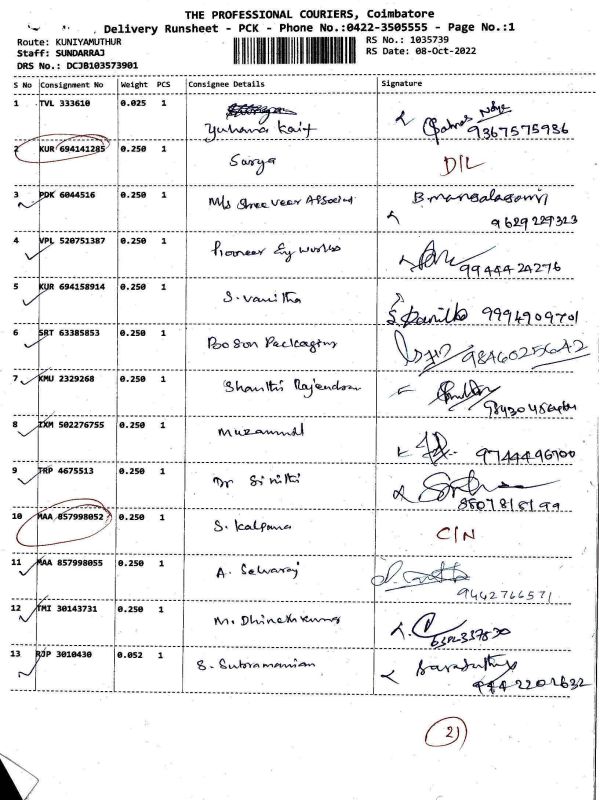 THE PROFESSIONAL COURIERS, Coimbatore
Delivery Runsheet - PCK - Phone No.:0422-3505555 - Page No.:1
Route: KUNIYAMUTHUR
RS No.: 1035739
Staff: SUNDARRAJ
RS Date: 08-Oct-2022
DRS No.: DCJB103573901
S No Consignment No Weight PCS Consignee Details Signature
1 TVL 333610 0.025 1 Yuhana Kait
9367575936
2 KUR 694141285 0.250 1 Surya D/L
3 PDK 6044516 0.250 1 M/s Shree Veer Associat B.mangalagowri
9629229323
4 VPL 520751387 0.250 1 Pioneer Ey works
9944424276
5 KUR 694158914 0.250 1 S. Vanitha 9994909701
6 SRT 63385853 0.250 1 Boson Packaging
9846025642
7 KMU 2329268 0.250 1 Shanthi Rajendran
8 IXM 502276755 0.250 1 Muzammil
9744496700
9 TRP 4675513 0.250 1 Dr Sinithi
8807818199
10 MAA 857998052 0.250 1 S. Kalpana C/N
11 MAA 857998055 0.250 1 A. Selvaraj
9442766571
12 TMI 30143731 0.250 1 M. Dhineshkumar
13 RJP 3010430 0.052 1 S. Subramanian
21